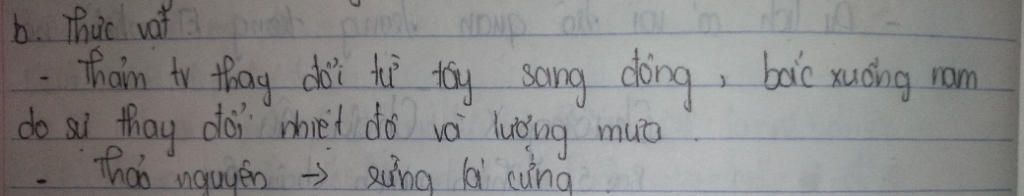 b. Thực vật
- Thảm tv thay đổi từ tây sang đông, bắc xuống nam
do sự thay đổi nhiệt độ và lượng mưa.
- Thảo nguyên → rừng lá cứng